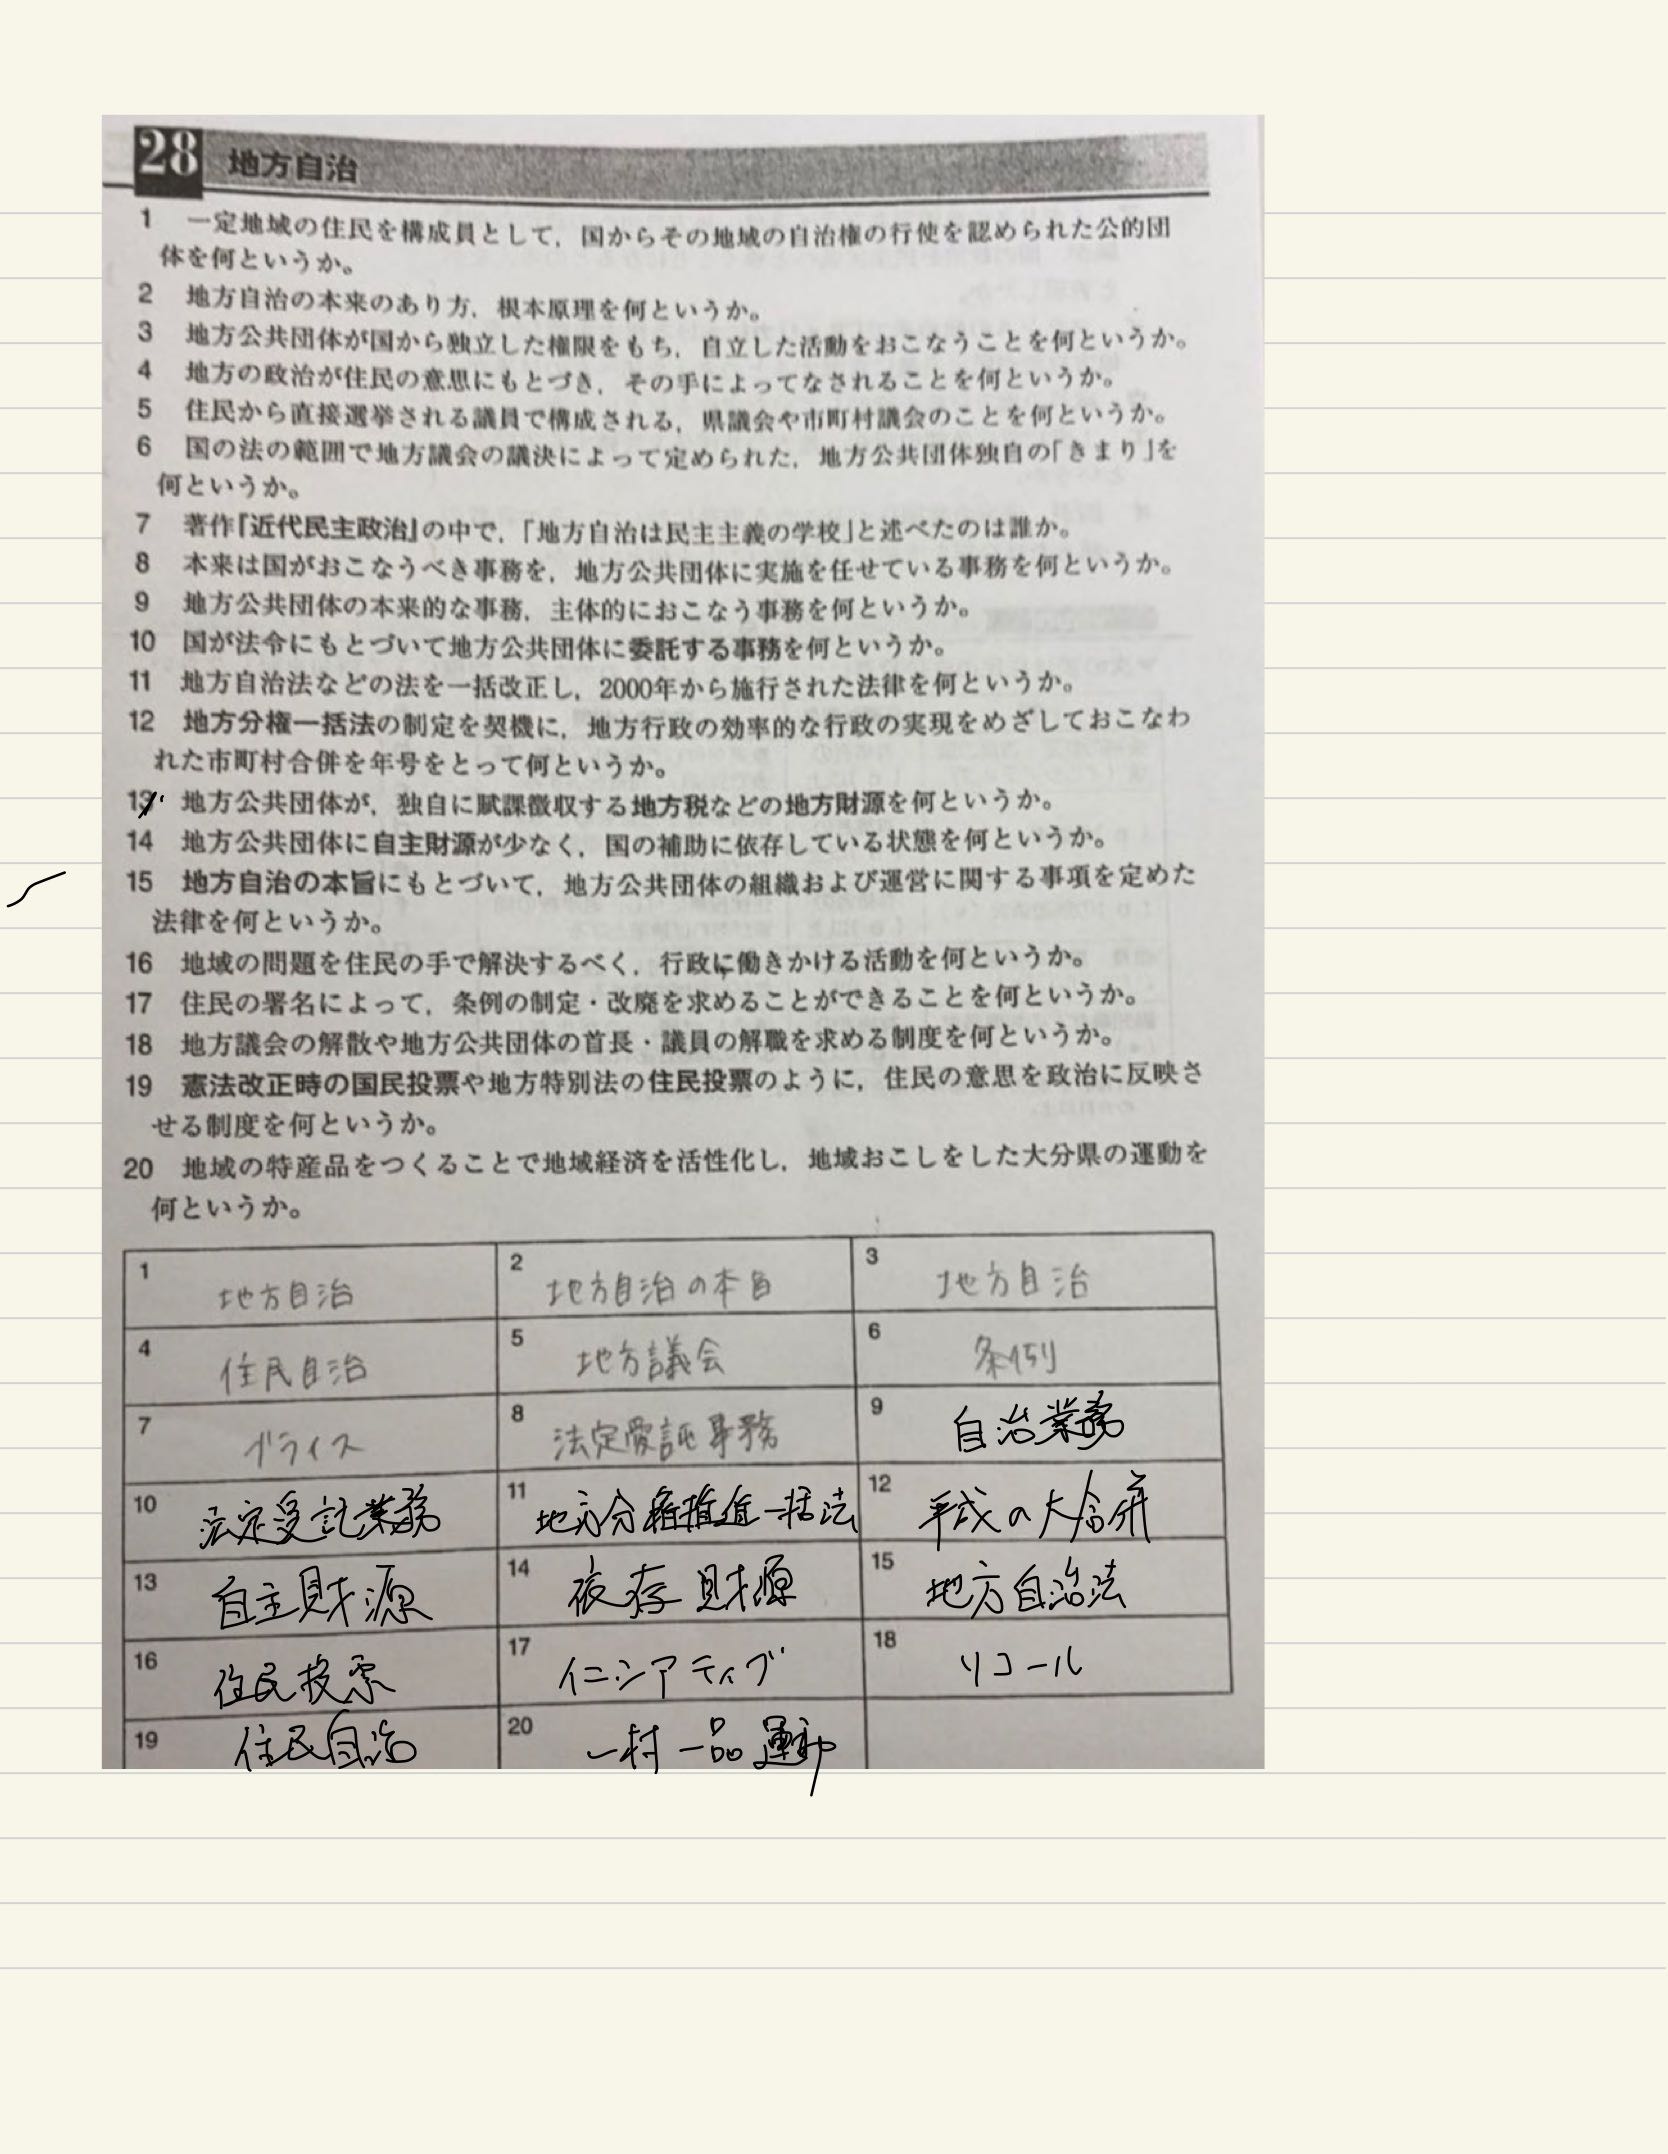 28 地方自治
1 一定地域の住民を構成員として，国からその地域の自治権の行使を認められた公的団
体を何というか。
2 地方自治の本来のあり方，根本原理を何というか。
3 地方公共団体が国から独立した権限をもち，自立した活動をおこなうことを何というか。
4 地方の政治が住民の意思にもとづき，その手によってなされることを何というか。
5 住民から直接選挙される議員で構成される，県議会や市町村議会のことを何というか。
6 国の法の範囲で地方議会の議決によって定められた，地方公共団体独自の「きまり」を
何というか。
7 著作『近代民主政治』の中で，「地方自治は民主主義の学校」と述べたのは誰か。
8 本来は国がおこなうべき事務を，地方公共団体に実施を任せている事務を何というか。
9 地方公共団体の本来的な事務，主体的におこなう事務を何というか。
10 国が法令にもとづいて地方公共団体に委託する事務を何というか。
11 地方自治法などの法を一括改正し，2000年から施行された法律を何というか。
12 地方分権一括法の制定を契機に，地方行政の効率的な行政の実現をめざしておこなわ
れた市町村合併を年号をとって何というか。
13 地方公共団体が，独自に賦課徴収する地方税などの地方財源を何というか。
14 地方公共団体に自主財源が少なく，国の補助に依存している状態を何というか。
15 地方自治の本旨にもとづいて，地方公共団体の組織および運営に関する事項を定めた
法律を何というか。
16 地域の問題を住民の手で解決するべく，行政に働きかける活動を何というか。
17 住民の署名によって，条例の制定・改廃を求めることができることを何というか。
18 地方議会の解散や地方公共団体の首長・議員の解職を求める制度を何というか。
19 憲法改正時の国民投票や地方特別法の住民投票のように，住民の意思を政治に反映さ
せる制度を何というか。
20 地域の特産品をつくることで地域経済を活性化し，地域おこしをした大分県の運動を
何というか。
1 地方自治 2 地方自治の本旨 3 地方自治
4 住民自治 5 地方議会 6 条例
7 ブライス 8 法定受託事務 9 自治業務
10 法定受託業務 11 地方分権推進一括法 12 平成の大合併
13 自主財源 14 依存財源 15 地方自治法
16 住民投票 17 イニシアティブ 18 リコール
19 住民自治 20 一村一品運動